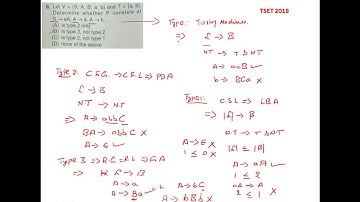 6. Let V = {S, A, B, a, b} and T = {a, b}.
Determine whether P consists of
S → aA, A → a, A → b.
(A) is type 2 only
(B) is type 3, not type 2
(C) is type 2, not type 1
(D) none of the above
TSET 2018
Type 0: Turing Machines.
⇒ L → B
NT → T & NT
A → aaB ✓
b → BCa X
Type 2: C.F.G. → C.F.L ⇒ PDA
L → B
NT → NT
A → abbC
BA → abbC X
A → ε ✓
Type 1: C.S.L ⇒ LBA
⇒ |L| → B
NT → T & NT
|L| ≤ |B|
A → ε X
1 ≤ 0 X
A → aA ✓
1 ≤ 2
aA → A
2 ≤ 1 X
Type 3 ⇒ R.G. ⇒ R.L ⇒ F.A
⇒ L → B
A → a
A → Ba
A → bC
A → bBb X